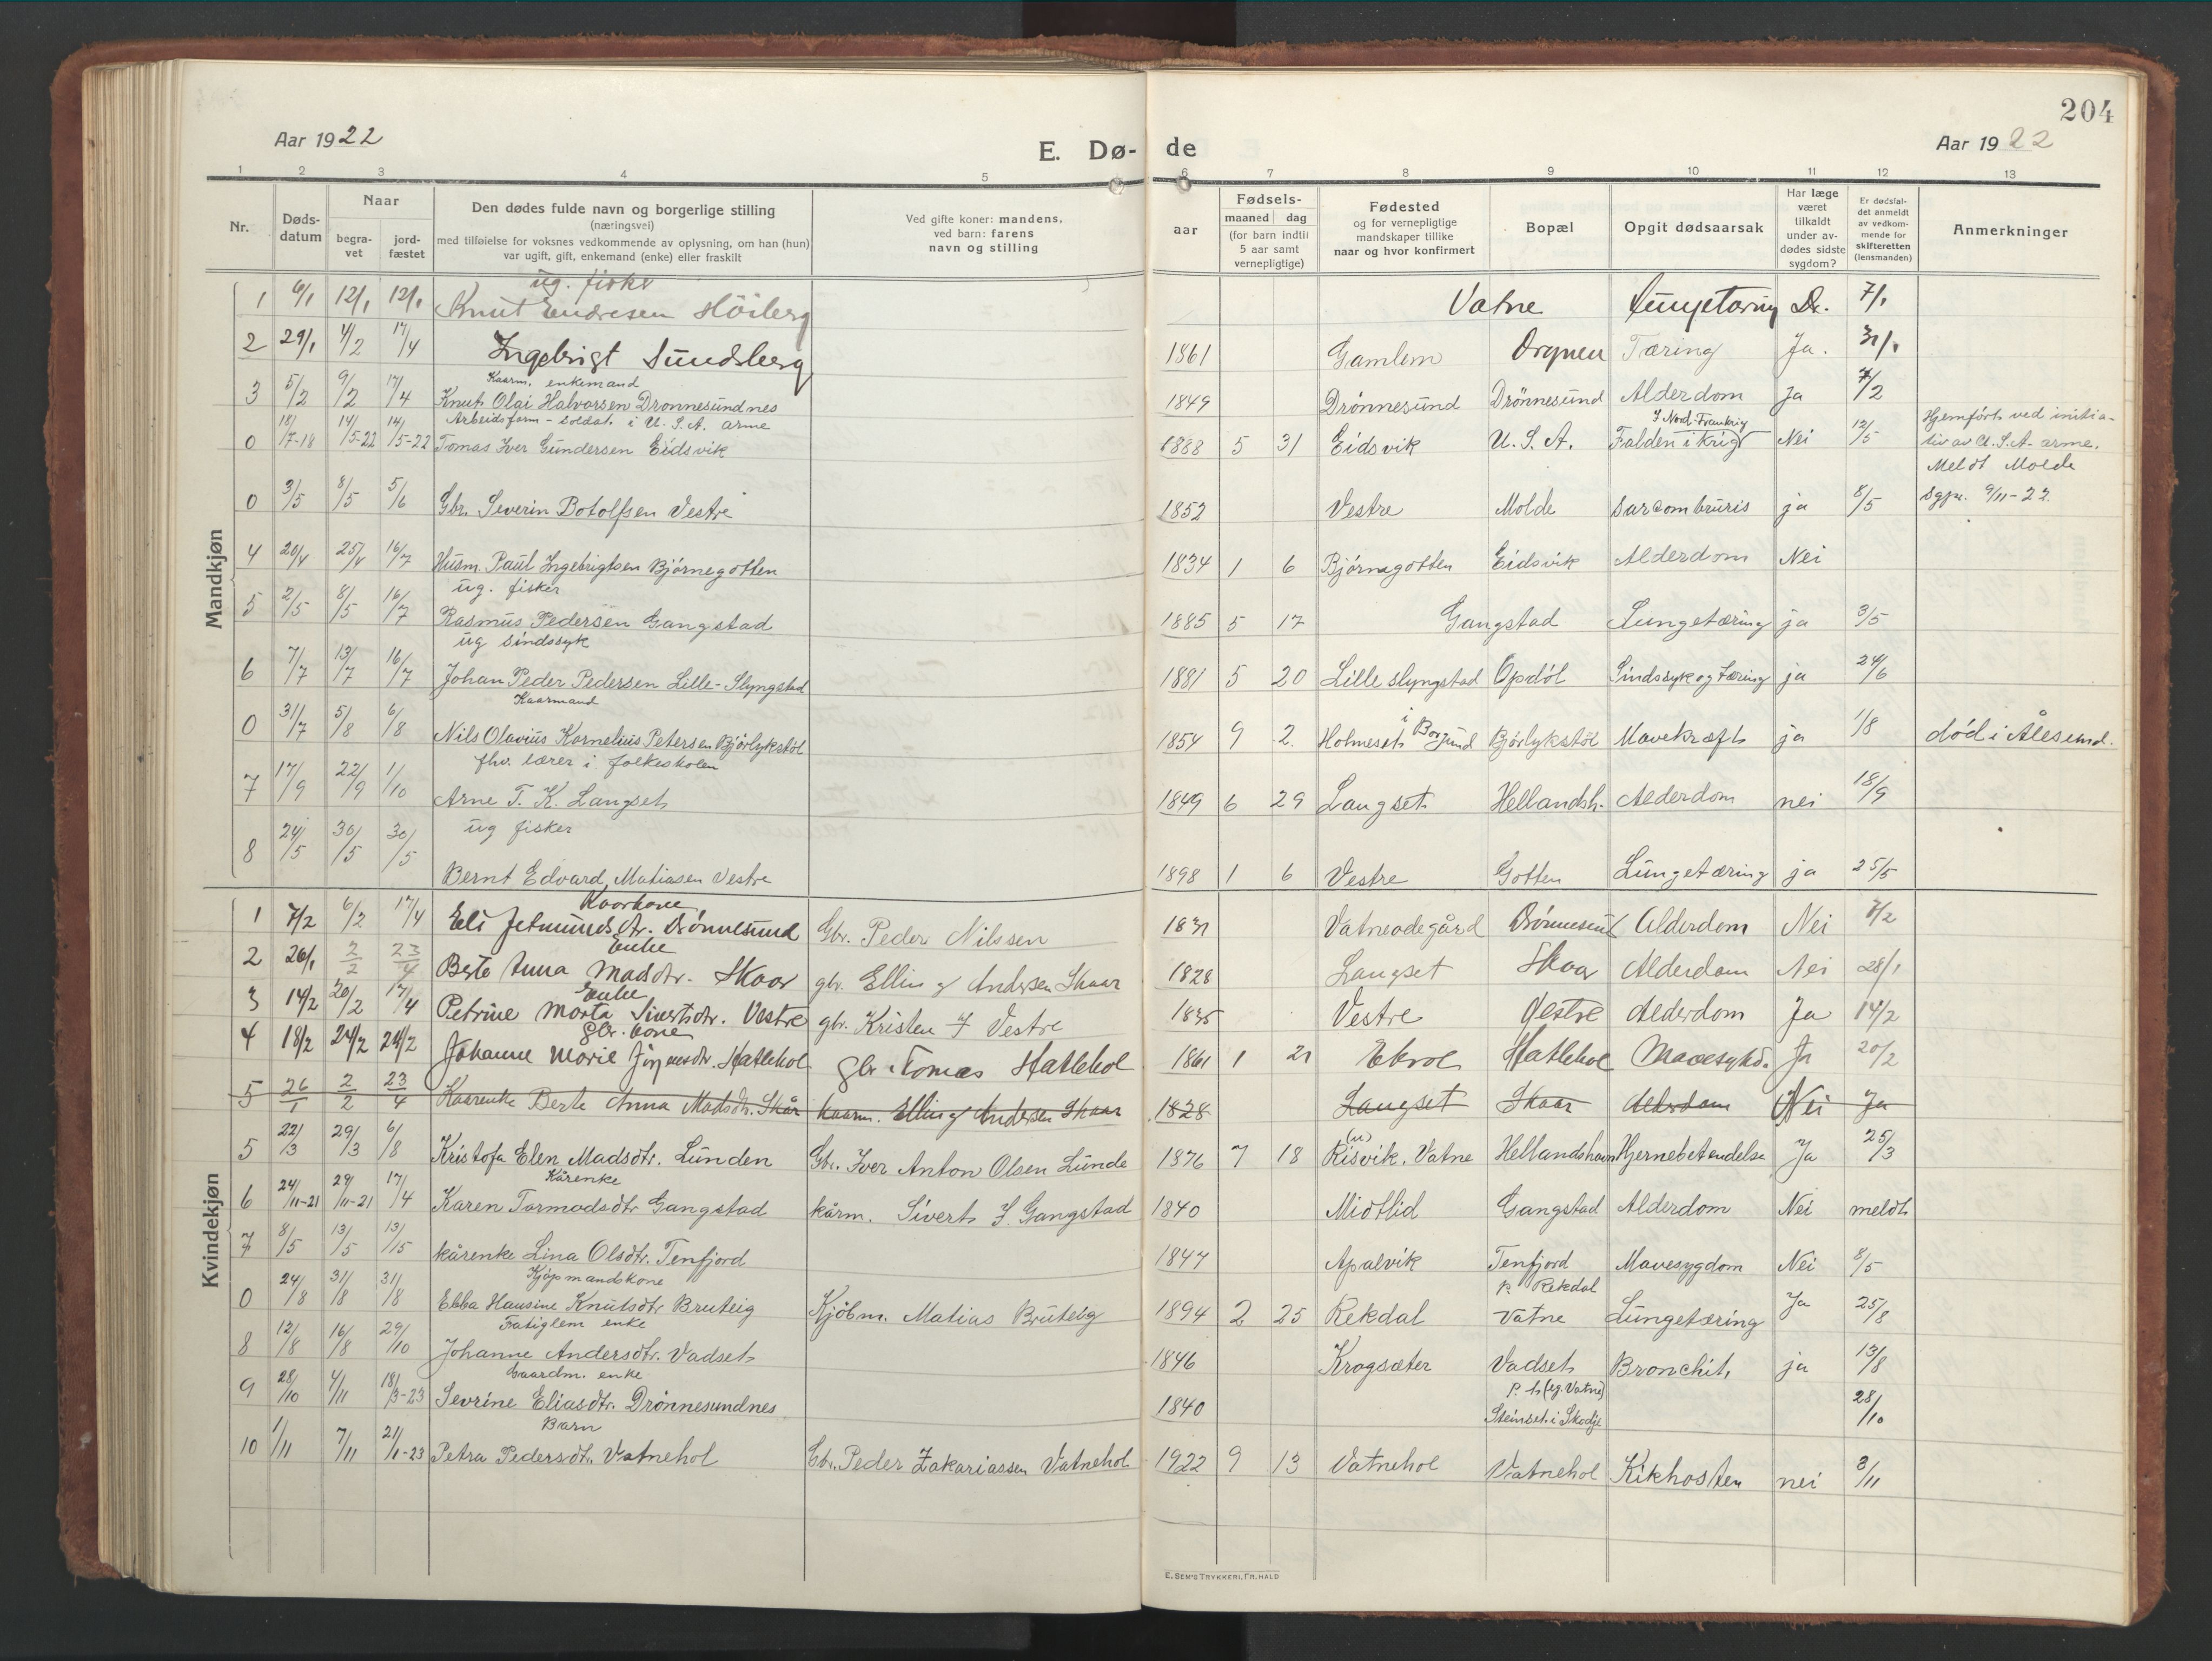 204
Aar 1922
E. Dø- de
Aar 1922
1 2 3 4 5 6 7 8 9 10 11 12 13
Nr. Døds-datum Naar begra-vet jord-fæstet
Den dødes fulde navn og borgerlige stilling
(næringsvei)
med tilføielse for voksnes vedkommende av oplysning, om han (hun)
var ugift, gift, enkemand (enke) eller fraskilt
Ved gifte koner: mandens,
ved barn: farens
navn og stilling
Fødsels-
aar maaned dag
(for barn indtil
5 aar samt
vernepligtige)
Fødested
og for vernepligtige
mandskaper tillike
naar og hvor konfirmert
Bopæl
Opgit dødsaarsak
Har læge
været
tilkaldt
under av-
dødes sidste
sygdom?
Er dødsfal-
det anmeldt
av vedkom-
mende for
skifteretten
(lensmanden)
Anmerkninger
Mandkjøn
ug. fisker
1 6/1 12/1 12/1 Knut Endresen Höiberg Vatne Lungetæring 7/1
2 29/1 4/2 17/4 Ingebrigt Sundsberg 1861 Gamlem Tæring Ja. 31/1
Kaarm. enkemand
3 5/2 9/2 17/4 Knut Olai Halvorsen Drønnesundnes 1849 Drönnesund Drönnesund Alderdom Ja 7/2
Arbeidsform - soldat i U. S. A. arme
0 18/7-18 14/5-22 14/5-22 Tomas Iver Gundersen Eidsvik 1888 5 31 Eidsvik U. S. A. I Nord-Frankrig Falden i krig Nei 12/5 Hjemført ved initia-
tiv av U. S. A. arme.
Meldt Molde
0 3/5 8/5 5/6 Gbr. Severin Botolfsen Vestre 1852 Vestre Molde ja 8/5 sgpr. 9/11-22
4 20/4 25/4 16/7 Husm. Paul Ingebrigtsen Björnegotten 1834 1 6 Björnegotten Eidsvik Alderdom Nei
ug. fisker
5 2/5 8/5 16/7 Rasmus Pedersen Gangstad 1885 5 17 Gangstad Lungetæring ja 3/5
ug sindssyk
6 7/7 13/7 16/7 Johan Peder Pedersen Lille-Slyngstad 1881 5 20 Lille slyngstad Opdöl Sindssyk og tæring ja 24/6
Kaarmand
0 31/7 5/8 6/8 Nils Olavius Kornelius Petersen Björlykstöl 1854 9 2. Holmeset i Borgund Björlykstöl Mavekræft ja 1/8 död i Ålesund.
fhv. lærer i folkeskolen
7 17/9 22/9 1/10 Arne T. K. Langset 1849 6 29 Langset Hellandsh. Alderdom nei 18/9
ug fisker
8 24/5 30/5 30/5 Bernt Edvard Matiasen Vestre 1898 1 6 Vestre Gotten Lungetæring ja 25/5
Kvindekjøn
Kaarkone
1 7/2 6/2 17/4 Eli Jetmundsdtr. Drönnesund Gbr. Peder Nilssen 1831 Vatneødegård Drönnesund Alderdom Nei 7/2
Enke
2 26/1 2/2 23/4 Berte Anna Madsdtr. Skaar gbr. Elling Andersen Skaar 1828 Langset Skaar Alderdom Nei 28/1
Enke
3 14/2 20/2 17/4 Petrine Marta Sivertsdtr. Vestre gbr. Kristen I Vestre 1835 Vestre Vestre Alderdom Ja 14/2
Gbr. kone
4 18/2 24/2 24/2 Johanne Marie Jörgensdtr. Hatlehol gbr. Tomas Hatlehol 1861 1 21 Ekrol Hatlehol Mavesykd. Ja 20/2
5 26/1 2/2 23/4 Kaarenke Berte Anna Madsdtr. Skår kaarm. Elling Andersen Skaar 1828 Langset Skaar Alderdom Nei Ja
5 22/3 29/3 6/8 Kristofa Elen Madsdtr. Lunden Gbr. Iver Anton Olsen Lunde 1876 7 18 Risvik, (u) Vatne Hellandshavn Hjernebetendelse Ja 25/3
Kårenke
6 24/11-21 29/11-21 17/4 Karen Tormodsdtr Gangstad kårm. Sivert I. Gangstad 1840 Midtlid Gangstad Alderdom Nei meldt
7 8/5 13/5 13/15 kårenke Lina Olsdtr. Tenfjord 1847 Apalvik Tenfjord Mavesygdom Nei 8/5
Kjöpmandskone
0 24/8 31/8 31/8 Ebba Hansine Knutsdtr Bruteig Kjöbm. Matias Bruteig 1894 2 25 Rekdal p. t. Rekdal Vatne Lungetæring Ja 25/8
Fatiglem enke
8 12/8 16/8 29/10 Johanne Andersdtr. Vadset 1846 Krogsæter Vadset Bronchit ja 13/8
Gaardm. enke
9 28/10 4/11 18/3-23 Sevrine Eliasdtr. Drönnesundnes 1840 P. t. (eg. Vatne) Steinset i Skodje 28/10
Barn
10 1/11 7/11 21/1-23 Petra Pedersdtr. Vatnehol Gbr. Peder Zakariassen Vatnehol 1922 9 13 Vatnehol Vatnehol Kikhosten nei 3/11
E. SEM'S TRYKKERI, FR. HALD